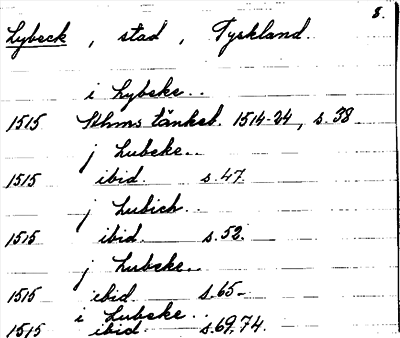 8.
Lybeck, stad, Tyskland.
i Lybeke..
1515 Sthms tänkeb. 1514-24, s.38
j Lubeke..
1515 ibid. s.47.
j Lubich..
1515 ibid. s.52.
j Lubeke..
1515 ibid. s.65.
i Lubeke..
1515 ibid. s.69,74.